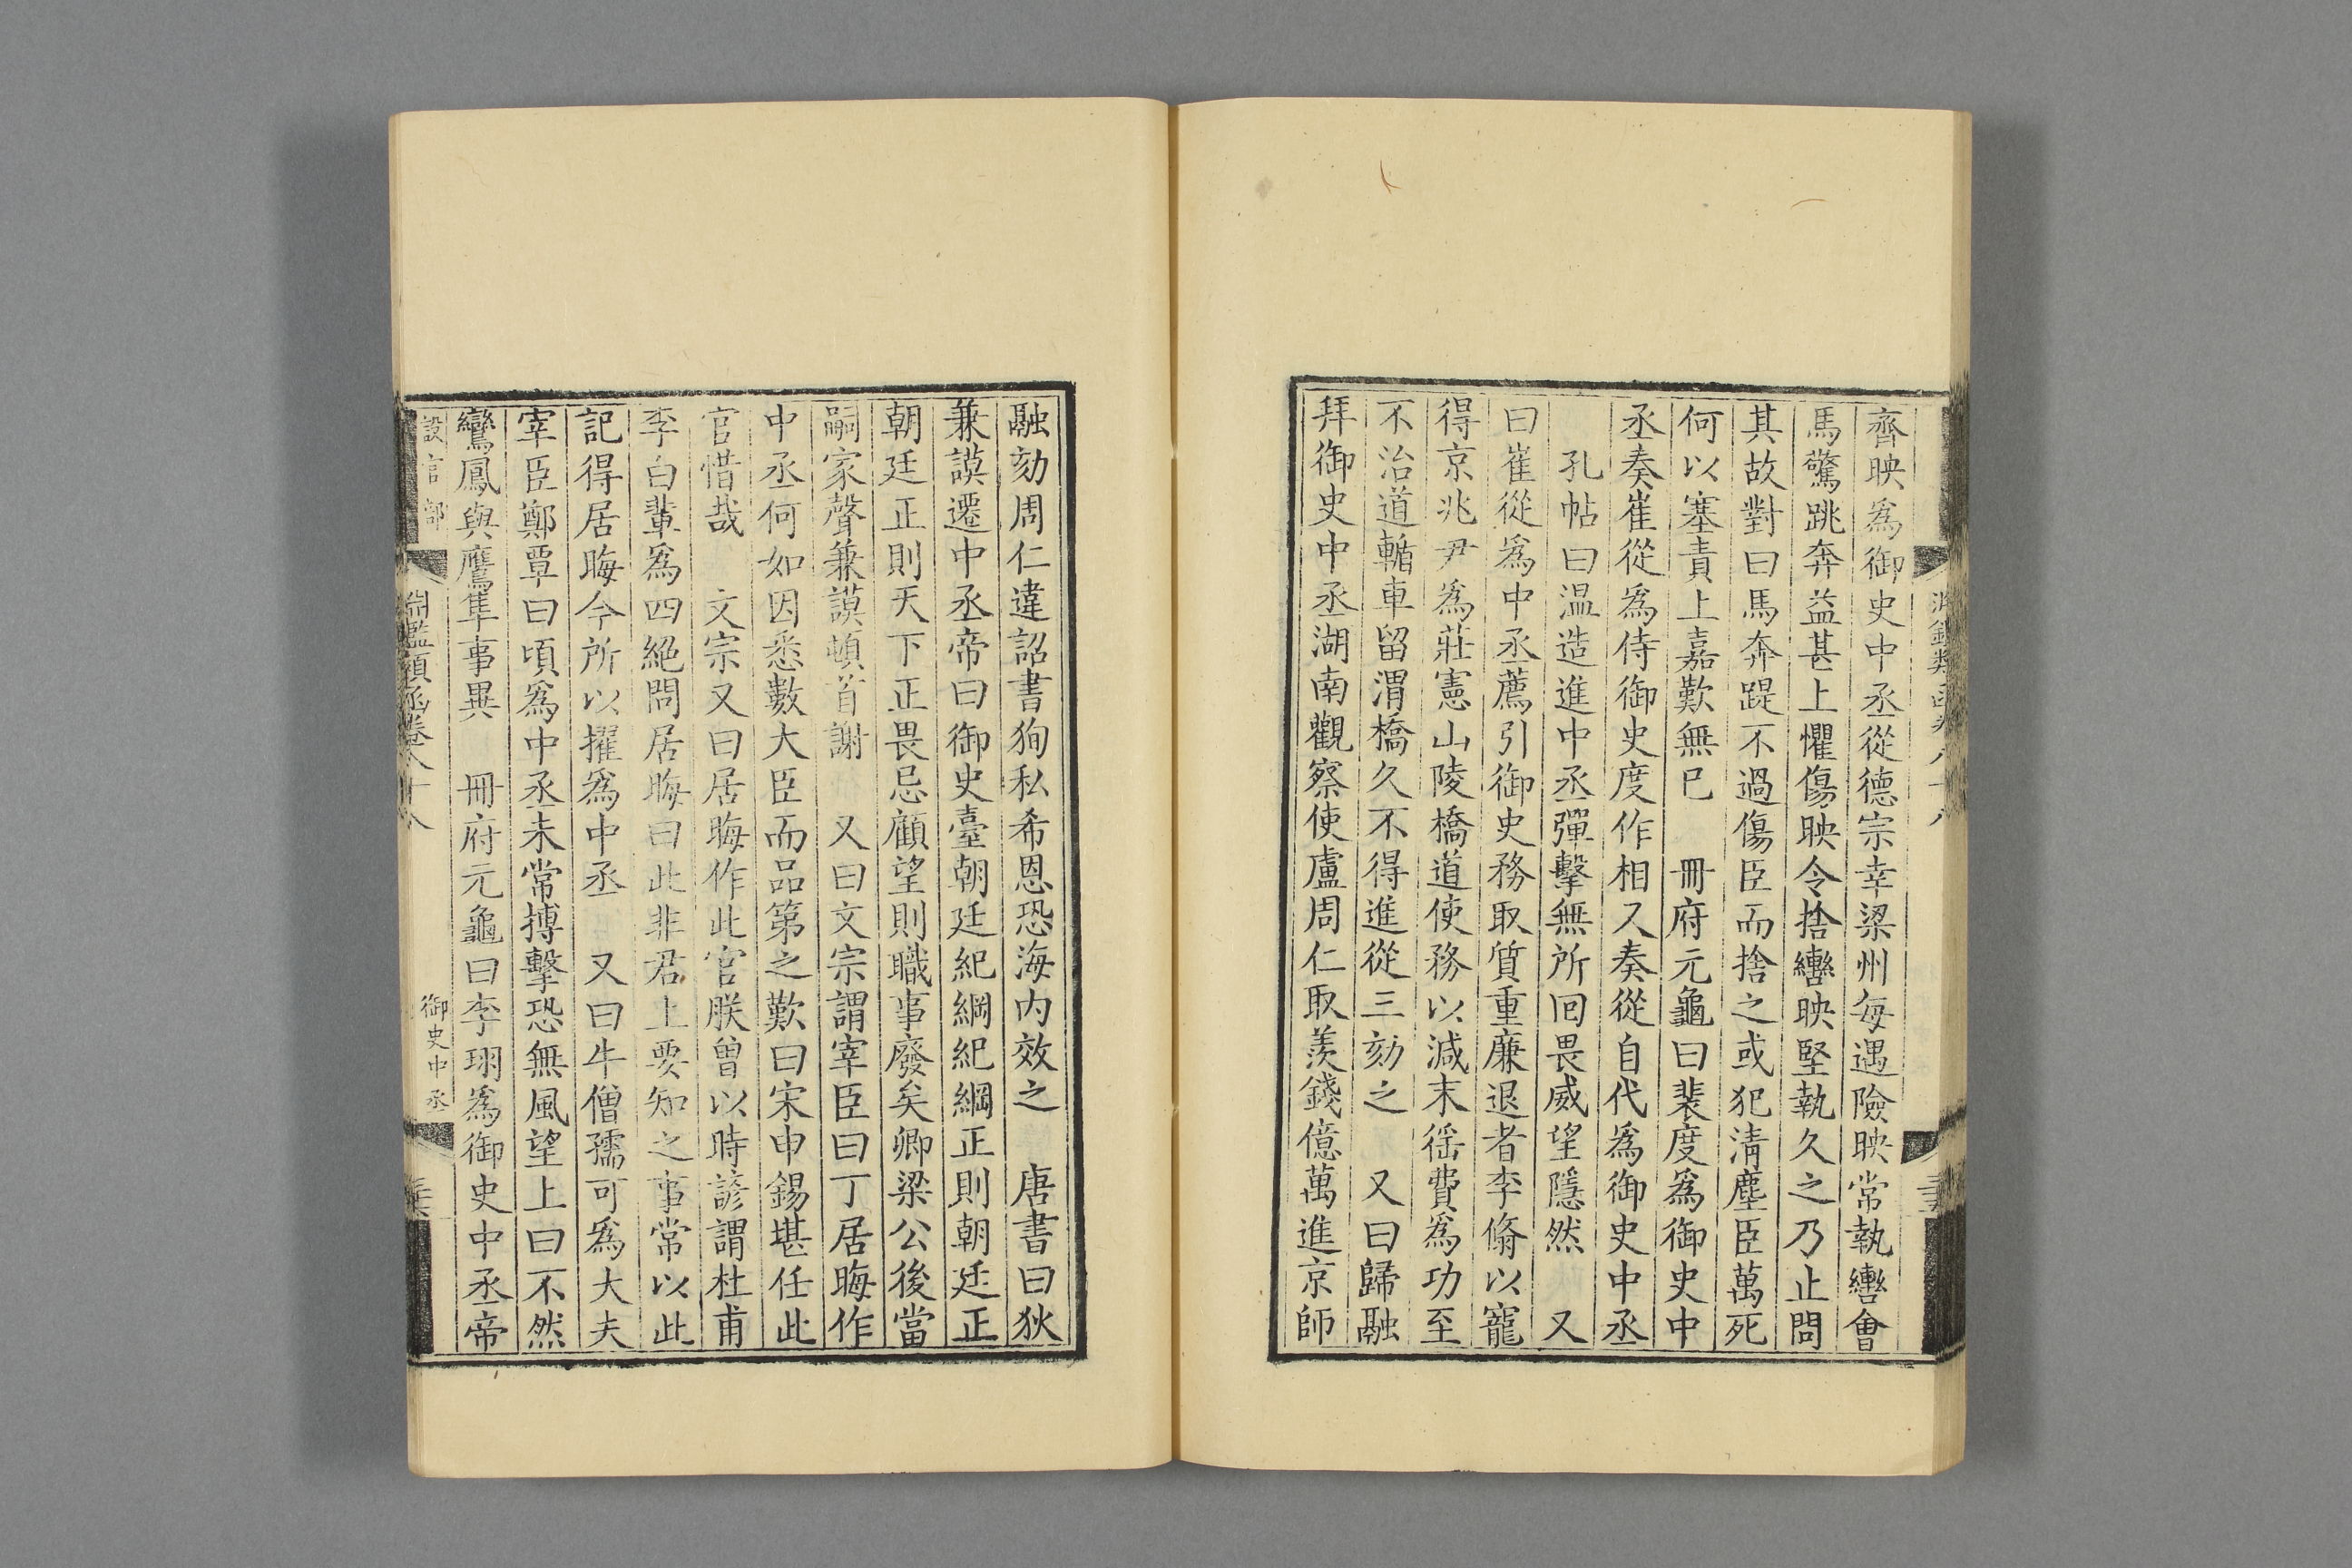 齊映爲御史中丞從德宗幸梁州每遇險映常執轡會
馬驚跳奔益甚上懼傷映令捨轡映堅執久之乃止問
其故對曰馬奔踶不過傷臣而捨之或犯淸塵臣萬死
何以塞責上嘉歎無已　冊府元龜曰裴度爲御史中
丞奏崔從爲侍御史度作相又奏從自代爲御史中丞
孔帖曰温造進中丞彈擊無所回畏威望隱然　又
曰崔從爲中丞薦引御史務取質重廉退者李翛以寵
得京兆尹爲莊憲山陵橋道使務以減末徭費爲功至
不治道轓車留渭橋久不得進從三劾之　又曰歸融
拜御史中丞湖南觀察使盧周仁取羨錢億萬進京師
融劾周仁違詔書狥私希恩恐海内效之　唐書曰狄
兼謨遷中丞帝曰御史臺朝廷紀綱紀綱正則朝廷正
朝廷正則天下正畏忌顧望則職事廢矣卿梁公後當
嗣家聲兼謨頓首謝　又曰文宗謂宰臣曰丁居晦作
中丞何如因悉數大臣而品第之歎曰宋申錫堪任此
官惜哉　文宗又曰居晦作此官朕曾以時諺謂杜甫
李白輩爲四絕問居晦曰此非君上要知之事常以此
記得居晦今所以擢爲中丞　又曰牛僧孺可爲大夫
宰臣鄭覃曰頃爲中丞未常搏擊恐無風望上曰不然
鸞鳳與鷹隼事異　冊府元龜曰李珝爲御史中丞帝
設官部　淵鑑類函卷八十八　御史中丞